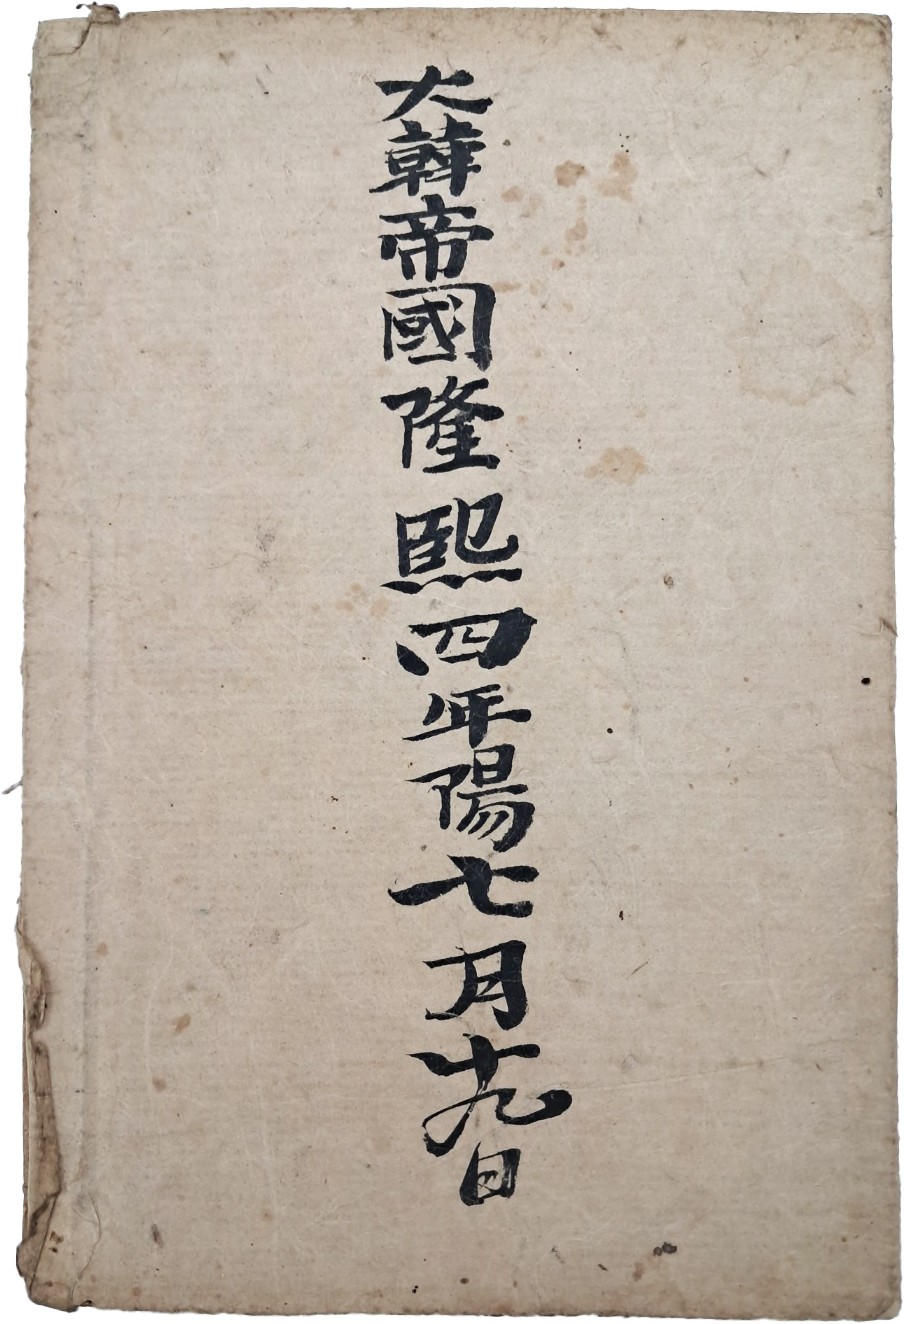 大韓帝國隆熙四年陽七月十九日